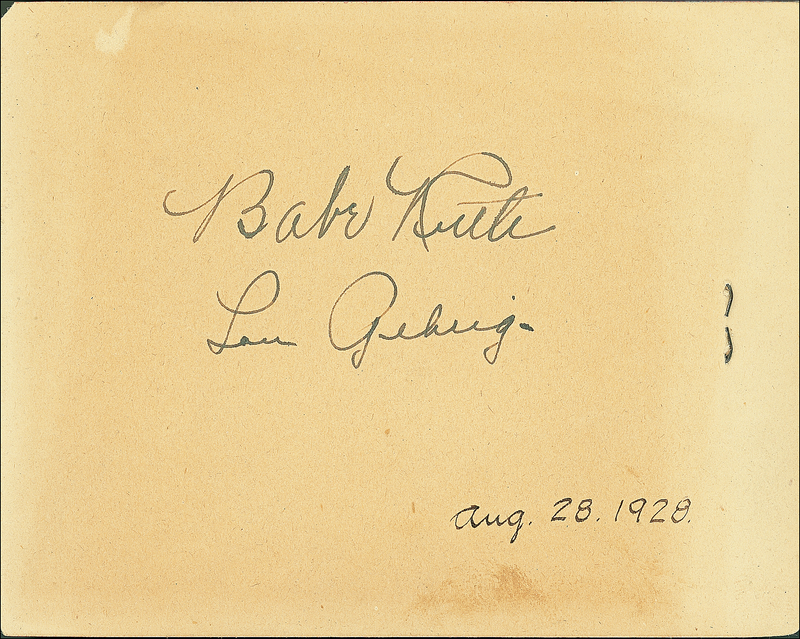 Babe Ruth
Lou Gehrig.
Aug. 28. 1928.